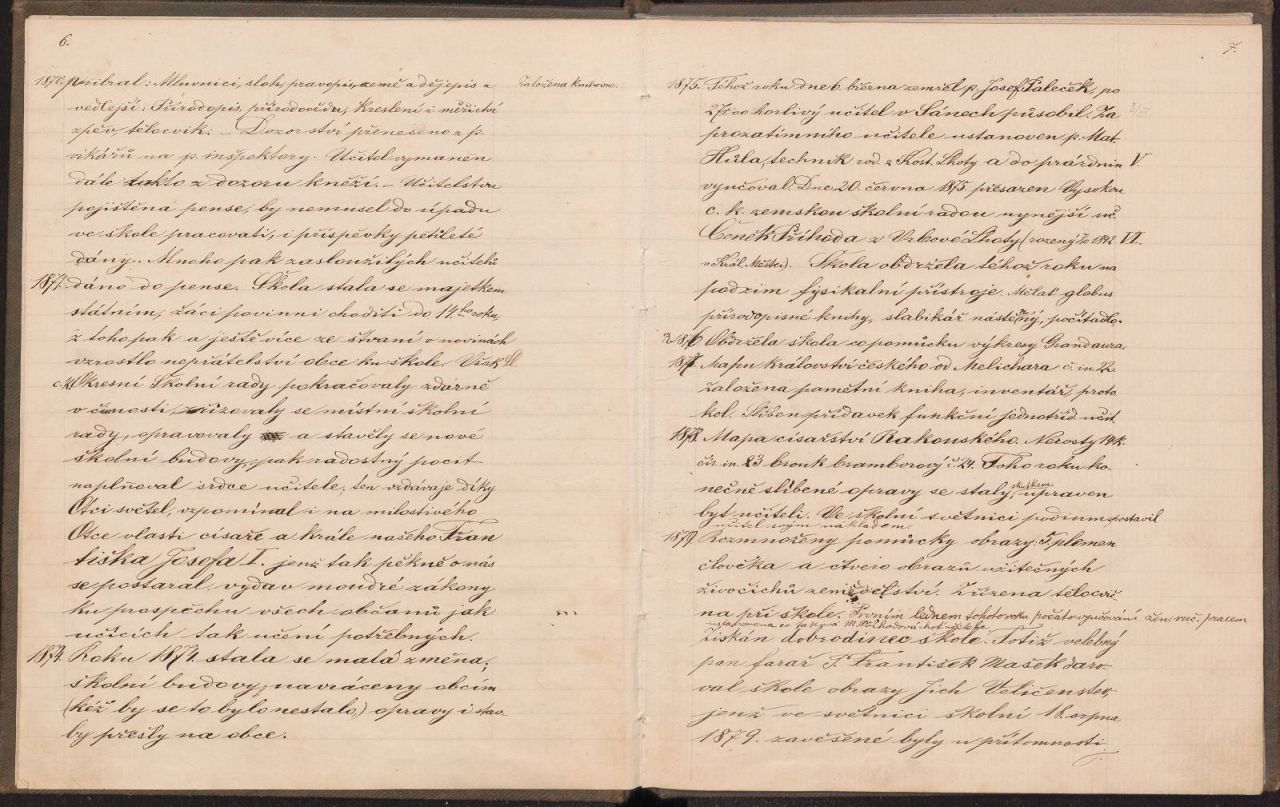 6.
1870. přibral: Mluvnici, sloh, pravopis, země a dějepis a
založena knihovna.
vedlejší: Přírodopis, přírodovědu, Kreslení i měřictví
zpěv, tělocvik. — Dozorství přenešeno z p.
vikářů na p. inspektory. Učitel vymaněn
dále takto z dozoru kněží. — Učitelstvu
pojištěna pense, by nemusel do úpadu
ve škole pracovati, i příspěvky pětileté
dány. Mnoho pak zasloužilých učitelů
1871. dáno do pense. Škola stala se majetkem
státním, žáci povinni choditi do 14ho roku,
z toho pak a ještě více ze štvaní v novinách
vzrostlo nepřátelství obce ku škole. Však
c.k. Okresní Školní rady pokračovaly zdárně
v činnosti, zřizovaly se místní školní
rady, opravovaly a stavěly se nové
školní budovy, pak radostný pocit
naplňoval srdce učitele, ten vzdávaje díky
Otci světel, vzpomínal i na milostivého
Otce vlasti císaře a krále našeho Fran
tiška Josefa I. jenž tak pěkně o nás
se postaral, vydav moudré zákony
ku prospěchu všech občanů jak
učících tak učení potřebných.
1874. Roku 1874. stala se malá změna;
školní budovy, navráceny obcím
(kéž by se to bylo nestalo,) opravy i stav-
by přešly na obce.
7.
1875. Téhož roku dne 6. března zemřel p. Josef Paleček, po
27r. co horlivý učitel v Sánech působil. Za
prozatímního učitele ustanoven p. Mat.
Hůla, technik rod. z Kost. Lhoty a do prázdnin V
vyučoval. Dne 20. června 1875 přesazen Vysokou
c. k. zemskou školní radou nynější uč.
Čeněk Příhoda z Vrbové Lhoty (rozený 1842 VI.
v Král. Městci). Škola obdržela téhož roku na
podzim fysikalní přístroje. Měla globus
přírodopisné knihy, slabikář nástěnný, počítadlo.
R 1876 Obdržela škola co pomůcku výkresy Grandaura,
1877. Mapu království českého od Melichara č. in 22.
Založena pamětní kniha, inventář, proto
kol. Slíben přídavek funkční jednotříd. učit.
1878. Mapa císařství Rakouského. Nerosty 14k.
čís. in. 23 brouk bramborový č. 24. Toho roku ko
nečně slíbené opravy se staly, skutkem upraven
byt učiteli. Ve školní světnici podium postavil
učitel svým nákladem
1879. Rozmnoženy pomůcky obrazy: 5 plemen
člověka a čtvero obrazů užitečných
živočichů zemědělství. Zřízena tělocvič
na při škole. Prvním lednem tohoto roku počato vyučování žen. ruč. pracem
ustanovena co
Získán dobrodinec škole. Totiž velebný
pan farář P. František Mašek daro-
val škole obrazy Jich Veličenstev,
jenž ve světnici školní 18. srpna
1879. zavěšené byly u přítomnosti,